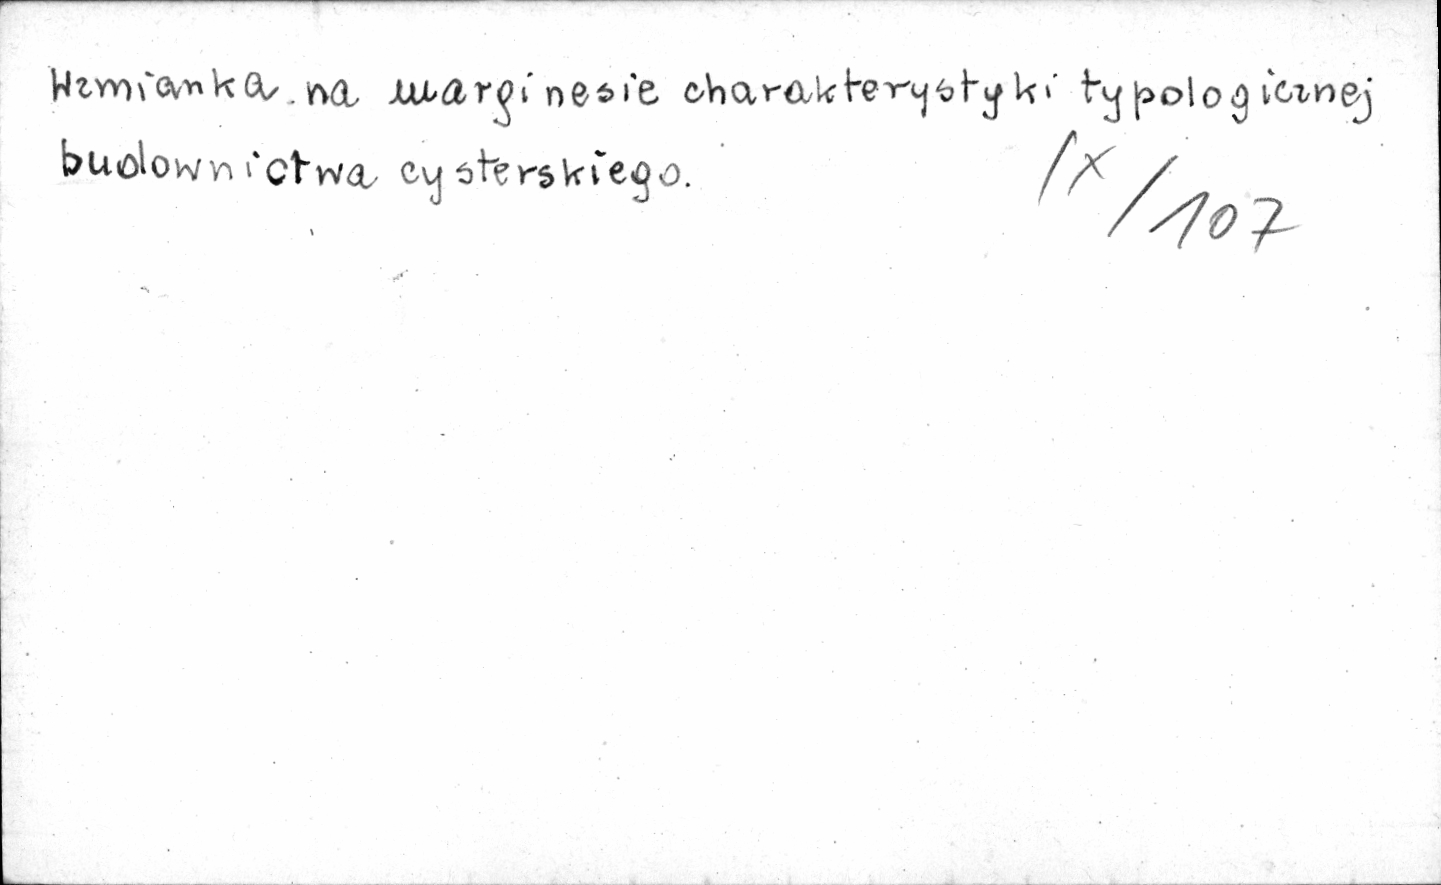 Wzmianka na marginesie charakterystyki typologicznej
budownictwa cysterskiego.
IX/107